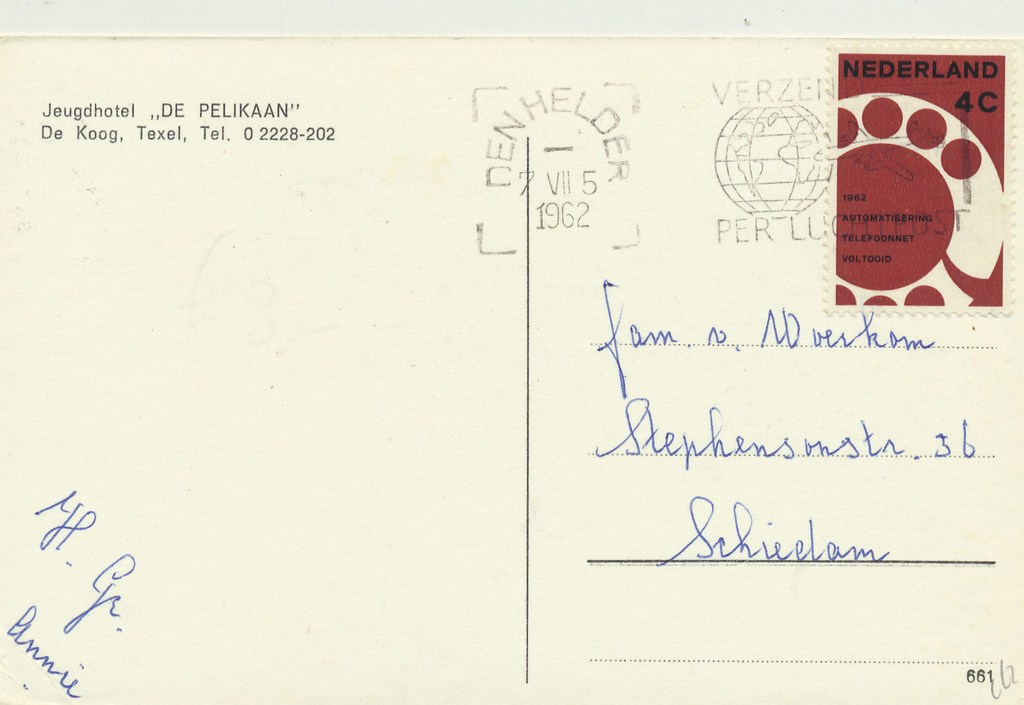 Jeugdhotel „DE PELIKAAN”
De Koog, Texel, Tel. 0 2228-202
DEN HELDER
7 VII 5
1962
VERZEN
PER LUCHTPOST
NEDERLAND
4 C
1962
AUTOMATISERING
TELEFOONNET
VOLTOOID
fam. v. Woerkom
Stephensonstr. 36
Schiedam
H. Gr.
Annie
661